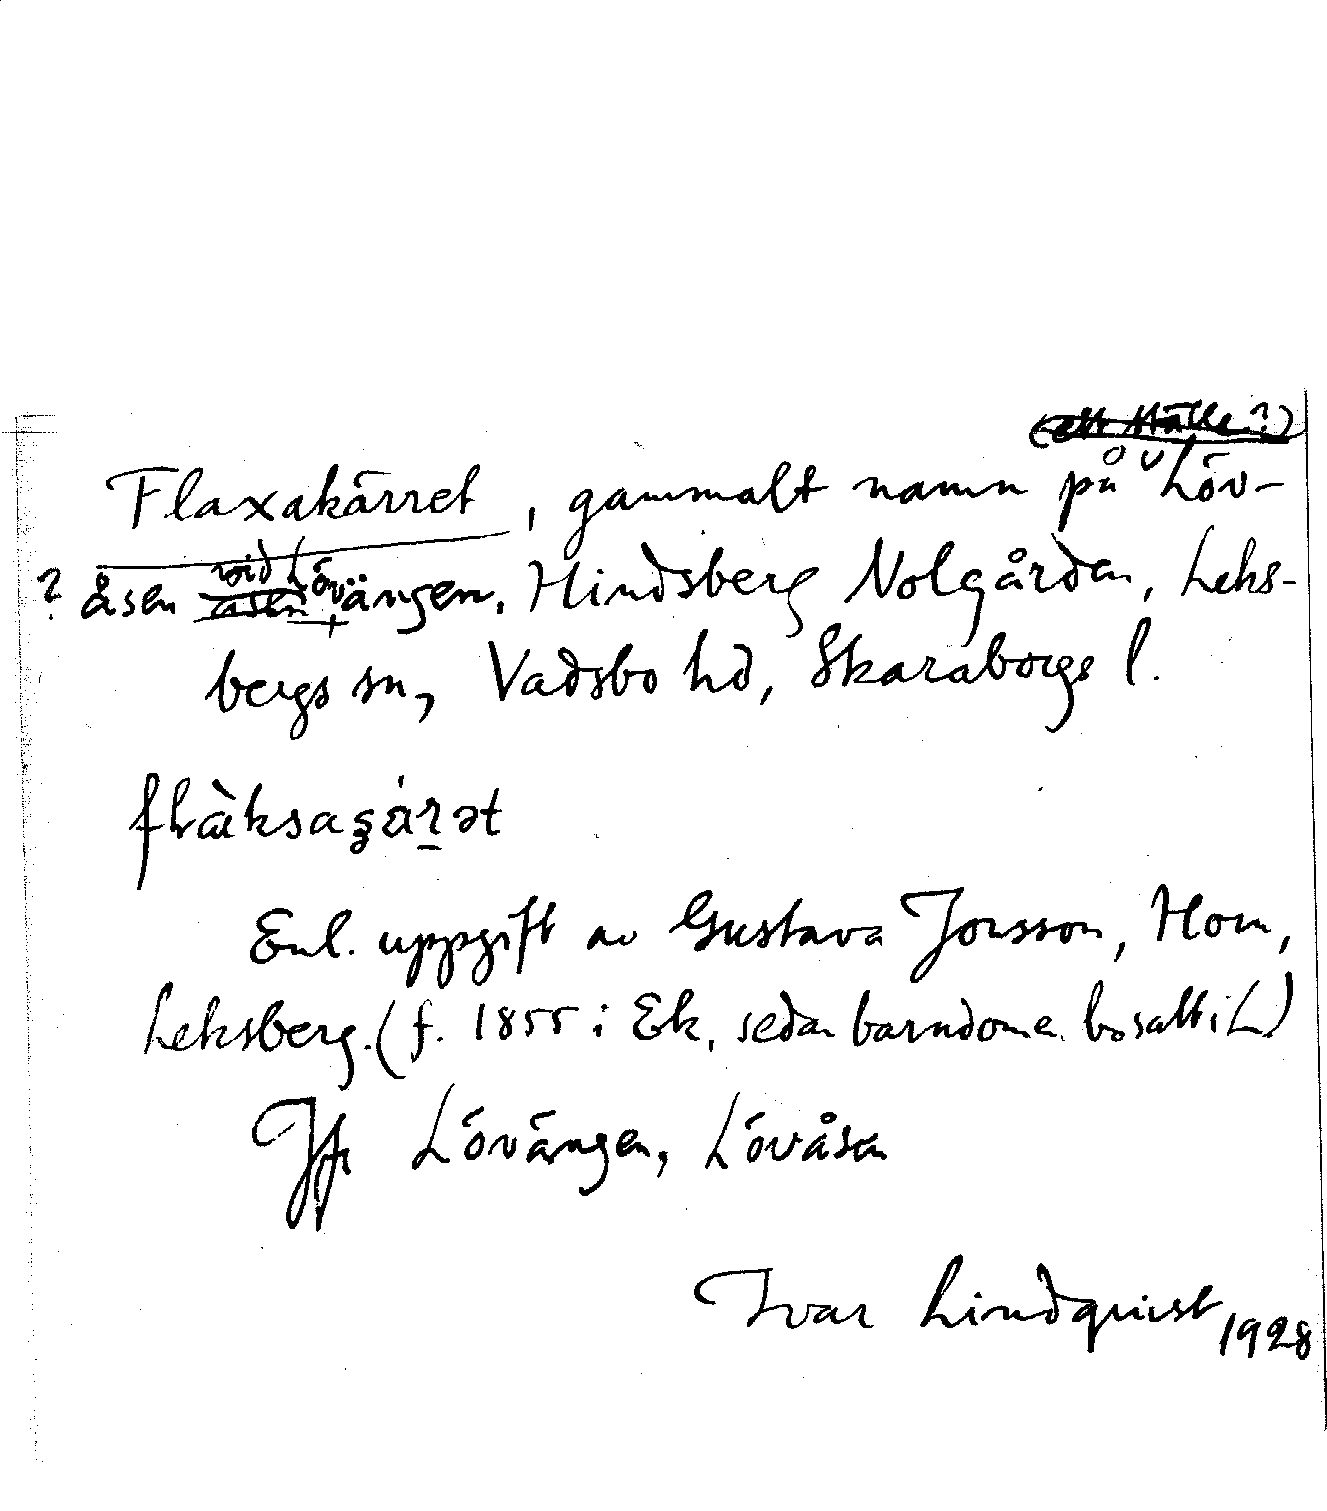 (ett ställe?)
Flaxakärret, gammalt namn på Löv-
? åsen vid Lövängen, Hindsberg Nolgården, Leks-
bergs sn, Vadsbo hd, Skaraborgs l.
Enl. uppgift av Gustava Jonsson, Horn,
Leksberg. (f. 1855 i Ek, sedan barndomen bosatt i L)
Jfr Lövängen, Lövåsen
Ivar Lindquist 1928